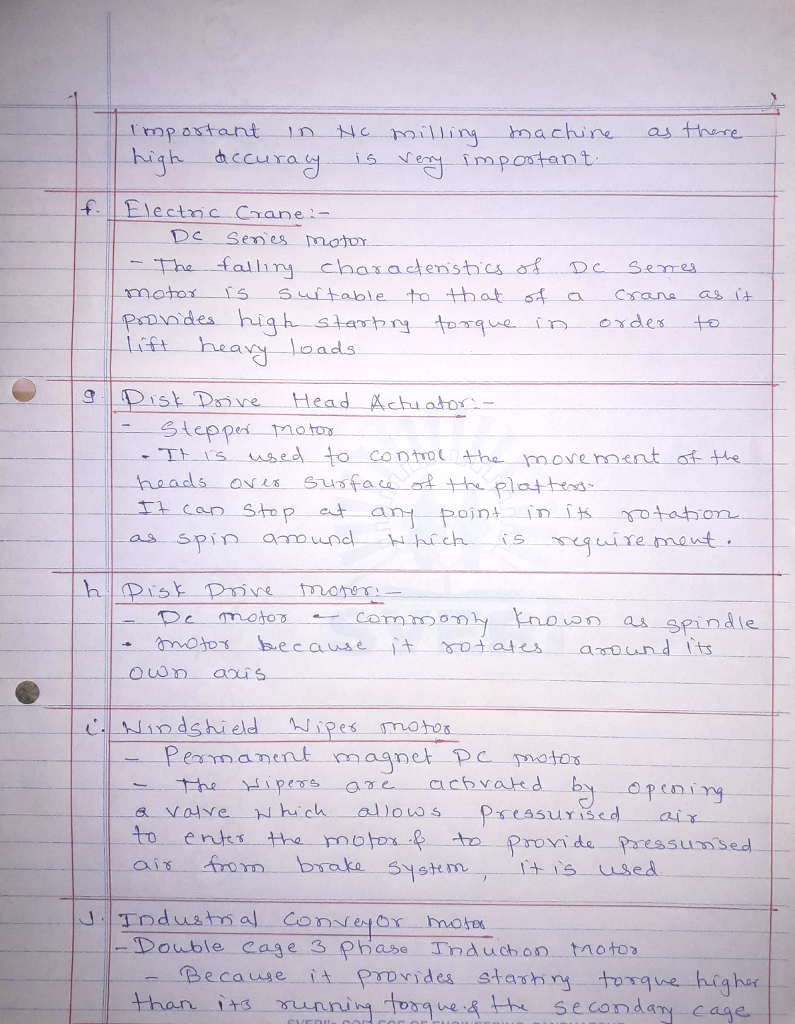 important in NC milling machine as there
high accuracy is very important.
f. Electric Crane:-
DC Series motor
- The falling characteristics of DC Series
motor is suitable to that of a crane as it
provides high starting torque in order to
lift heavy loads
g. Disk Drive Head Actuator:-
- Stepper motor
- It is used to control the movement of the
heads over surface of the platters.
It can stop at any point in its rotation
as spin around which is requirement.
h Disk Drive motor:-
- Dc motor - commonly known as spindle
- motor because it rotates around its
own axis
i. Windshield Wiper motor
- Permanent magnet DC motor
- The wipers are activated by opening
a valve which allows pressurised air
to enter the motor & to provide pressurised
air from brake system, it is used.
J. Industrial conveyor motor
- Double cage 3 phase Induction motor
- Because it provides starting torque higher
than its running torque & the secondary cage